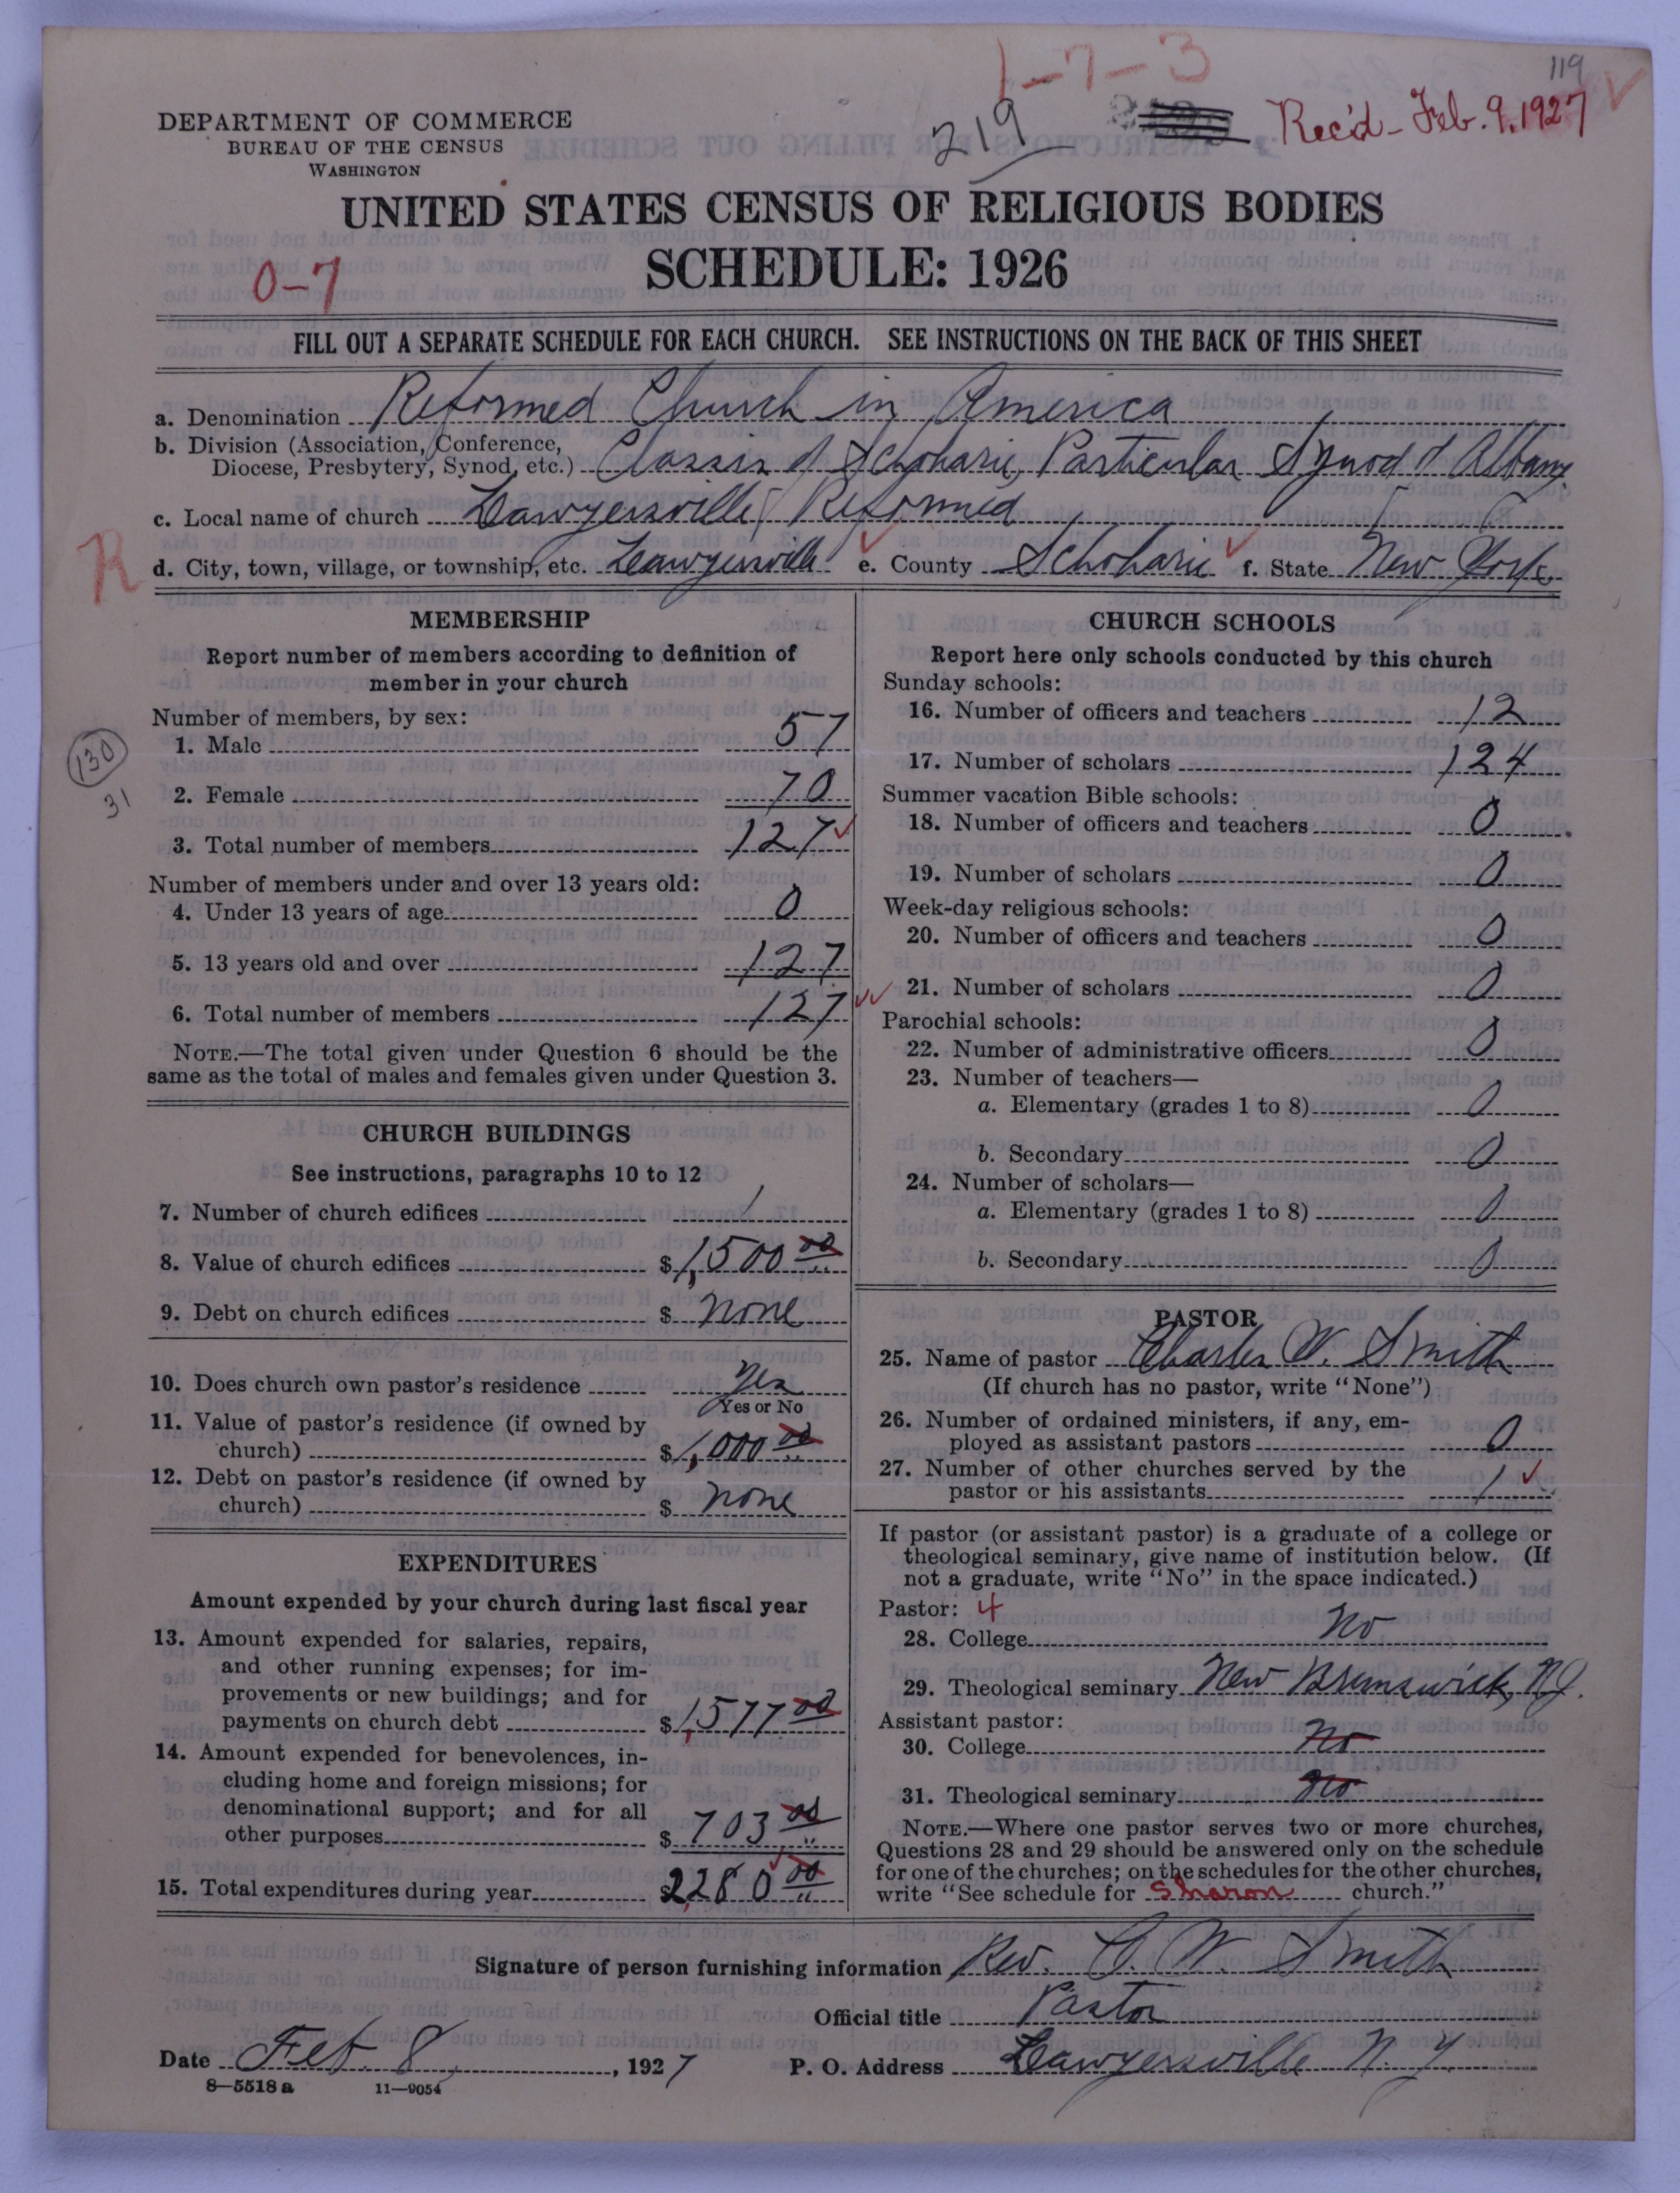 1-7-3
119
219
Rec'd- Feb. 9, 1927
DEPARTMENT OF COMMERCE
BUREAU OF THE CENSUS
WASHINGTON
UNITED STATES CENSUS OF RELIGIOUS BODIES
SCHEDULE: 1926
0-7
FILL OUT A SEPARATE SCHEDULE FOR EACH CHURCH. SEE INSTRUCTIONS ON THE BACK OF THIS SHEET
a. Denomination Reformed Church in America
b. Division (Association, Conference,
Diocese, Presbytery, Synod, etc.) Classis of Schoharie, Particular Synod of Albany
c. Local name of church Lawyersville Reformed
R
d. City, town, village, or township, etc. Lawyersville e. County Schoharie f. State New York
MEMBERSHIP
Report number of members according to definition of
member in your church
Number of members, by sex:
1. Male 57
130
31
2. Female 70
3. Total number of members 127
Number of members under and over 13 years old:
4. Under 13 years of age 0
5. 13 years old and over 127
6. Total number of members 127
NOTE.—The total given under Question 6 should be the
same as the total of males and females given under Question 3.
CHURCH BUILDINGS
See instructions, paragraphs 10 to 12
7. Number of church edifices 1
8. Value of church edifices $1,500 00
9. Debt on church edifices $ none
10. Does church own pastor's residence Yes
Yes or No
11. Value of pastor's residence (if owned by
church) $1,000 00
12. Debt on pastor's residence (if owned by
church) $ none
EXPENDITURES
Amount expended by your church during last fiscal year
13. Amount expended for salaries, repairs,
and other running expenses; for im-
provements or new buildings; and for
payments on church debt $1,577 00
14. Amount expended for benevolences, in-
cluding home and foreign missions; for
denominational support; and for all
other purposes $ 703 00
15. Total expenditures during year $2,280 00
CHURCH SCHOOLS
Report here only schools conducted by this church
Sunday schools:
16. Number of officers and teachers 12
17. Number of scholars 124
Summer vacation Bible schools:
18. Number of officers and teachers 0
19. Number of scholars 0
Week-day religious schools:
20. Number of officers and teachers 0
21. Number of scholars 0
Parochial schools:
22. Number of administrative officers 0
23. Number of teachers—
a. Elementary (grades 1 to 8) 0
b. Secondary 0
24. Number of scholars—
a. Elementary (grades 1 to 8) 0
b. Secondary 0
PASTOR
25. Name of pastor Charles W. Smith
(If church has no pastor, write "None")
26. Number of ordained ministers, if any, em-
ployed as assistant pastors 0
27. Number of other churches served by the
pastor or his assistants 1
If pastor (or assistant pastor) is a graduate of a college or
theological seminary, give name of institution below. (If
not a graduate, write "No" in the space indicated.)
Pastor: 4
28. College No
29. Theological seminary New Brunswick, N.J.
Assistant pastor:
30. College No
31. Theological seminary No
NOTE.—Where one pastor serves two or more churches,
Questions 28 and 29 should be answered only on the schedule
for one of the churches; on the schedules for the other churches,
write "See schedule for Sharon church."
Signature of person furnishing information Rev. C. W. Smith
Official title Pastor
Date Feb. 8, 1927 P. O. Address Lawyersville N. Y.
8—5518 a 11—9054